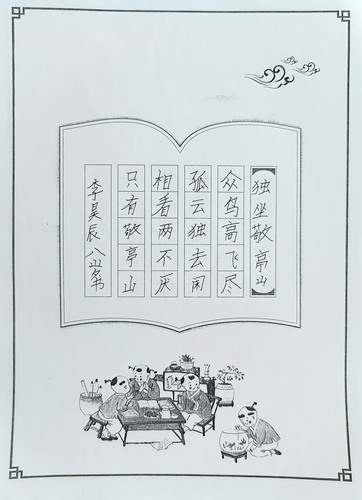 独坐敬亭山
众鸟高飞尽
孤云独去闲
相看两不厌
只有敬亭山
李昊辰八